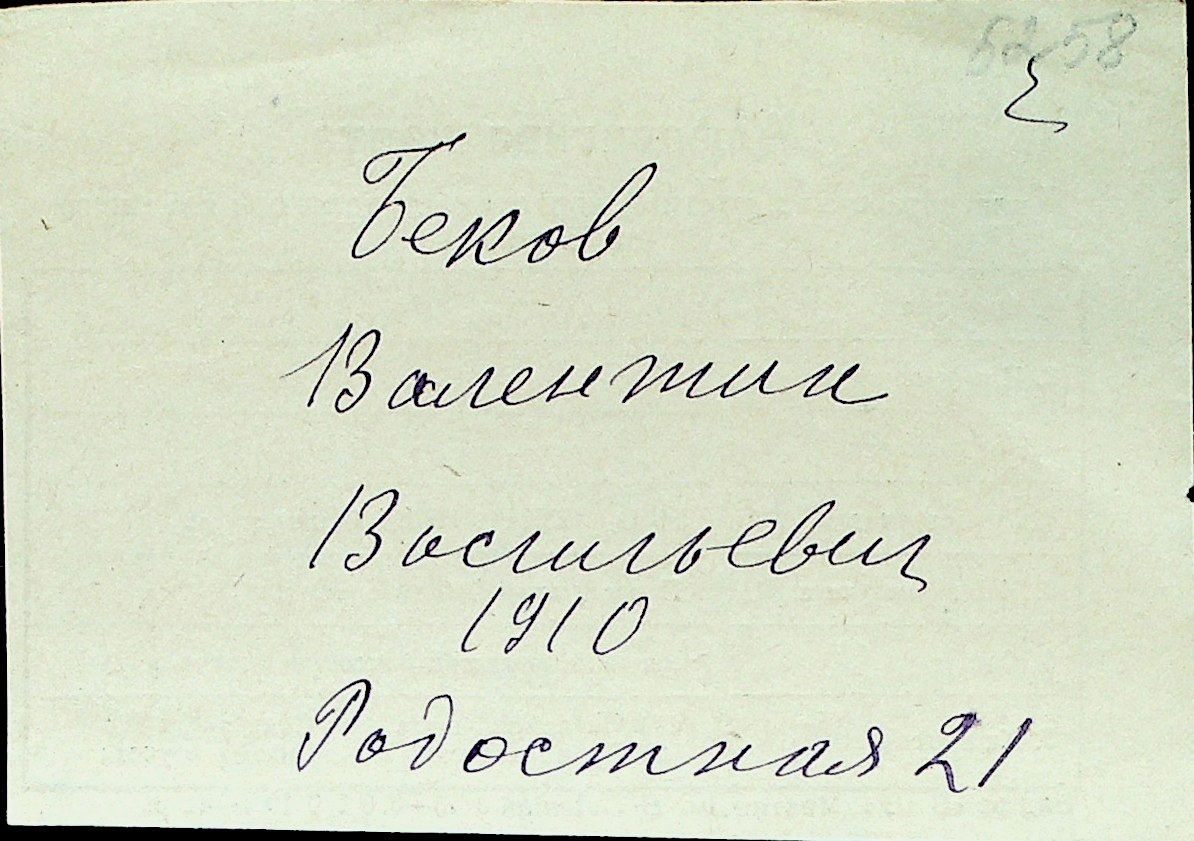 6258
Беков
Валентин
Васильевич
1910
Радостная 21